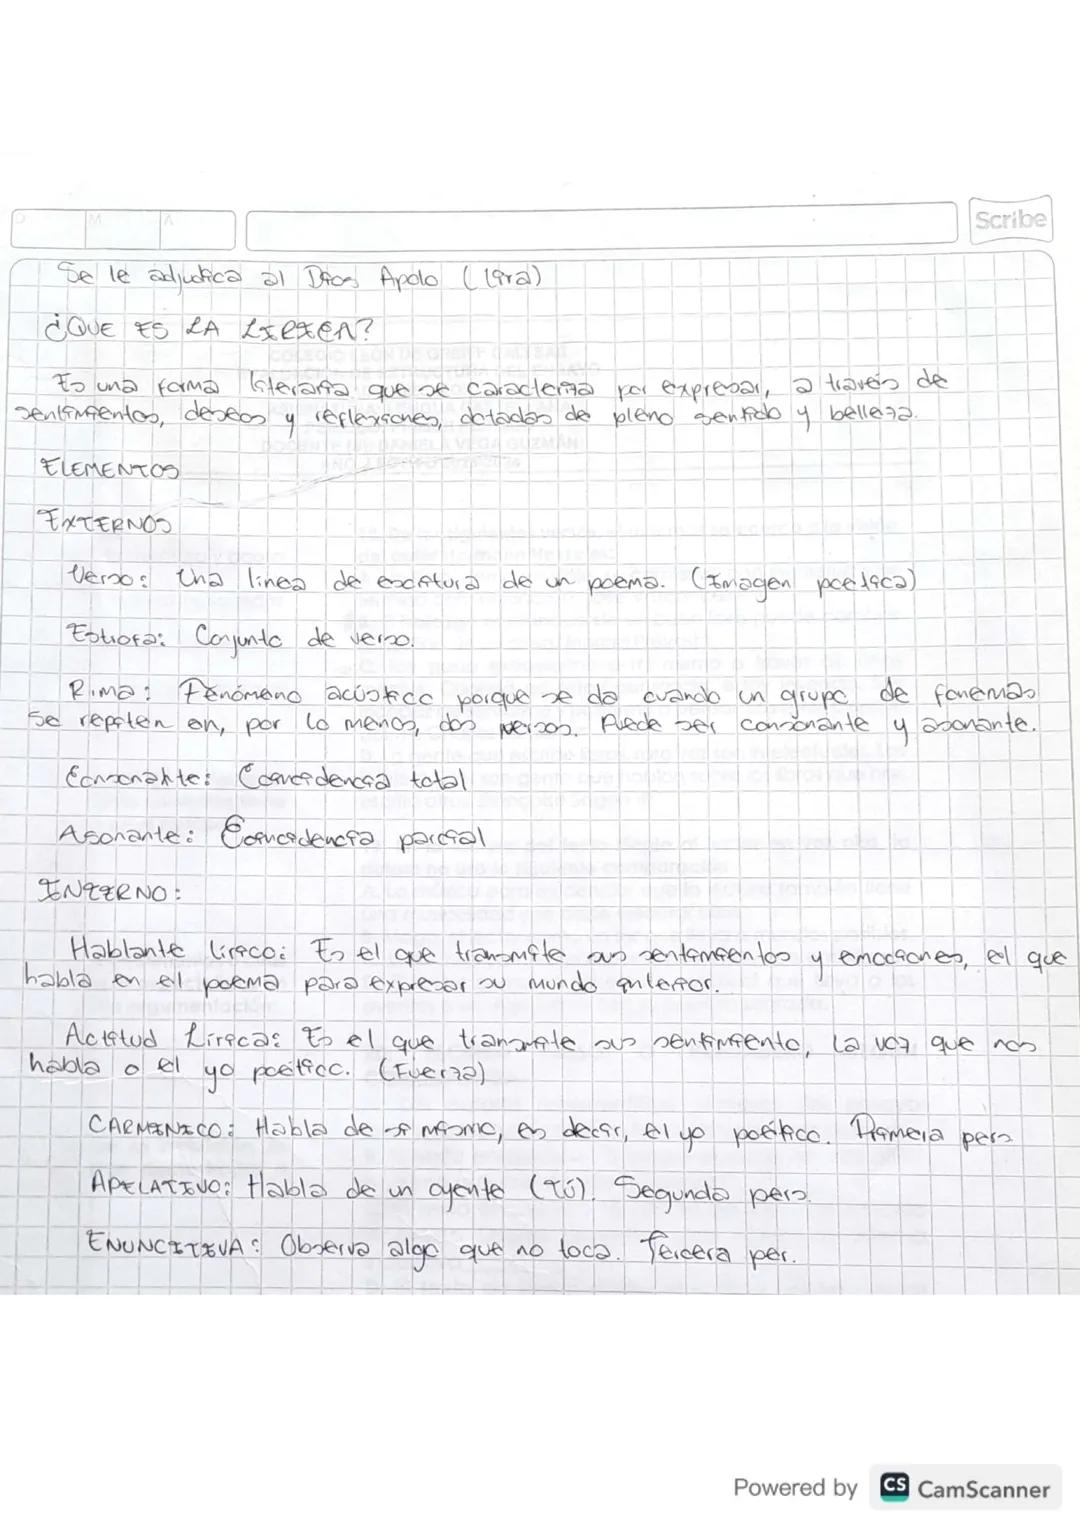 D M A Scribe
Se le adjudica al Dios Apolo (lira)
¿QUE ES LA LIRICA?
Es una forma literaria que se caracteriza por expresar, a través de
sentimientos, deseos y reflexiones, dotadas de pleno sentido y belleza.
ELEMENTOS
EXTERNOS
Verso: Una linea de escritura de un poema. (Imagen poetica)
Estrofa: Conjunto de verso.
Rima: Fenómeno acústico porque se da cuando un grupo de fonemas
se repiten en, por lo menos, dos versos. Puede ser consonante y asonante.
Consonante: Coincidencia total
Asonante: Coincidencia parcial
INTERNO:
Hablante lirico: Es el que transmite sus sentimientos y emociones, el que
habla en el poema para expresar su mundo interior.
Actitud Lirica: Es el que transmite sus sentimiento, la voz que nos
habla o el yo poético. (Fuerza)
CARMINICO: Habla de si mismo, es decir, el yo poético. Primera pers
APELATIVO: Habla de un oyente (TÚ). Segunda pers.
ENUNCITIVA: Observa algo que no toca. Tercera per.
Powered by CS CamScanner